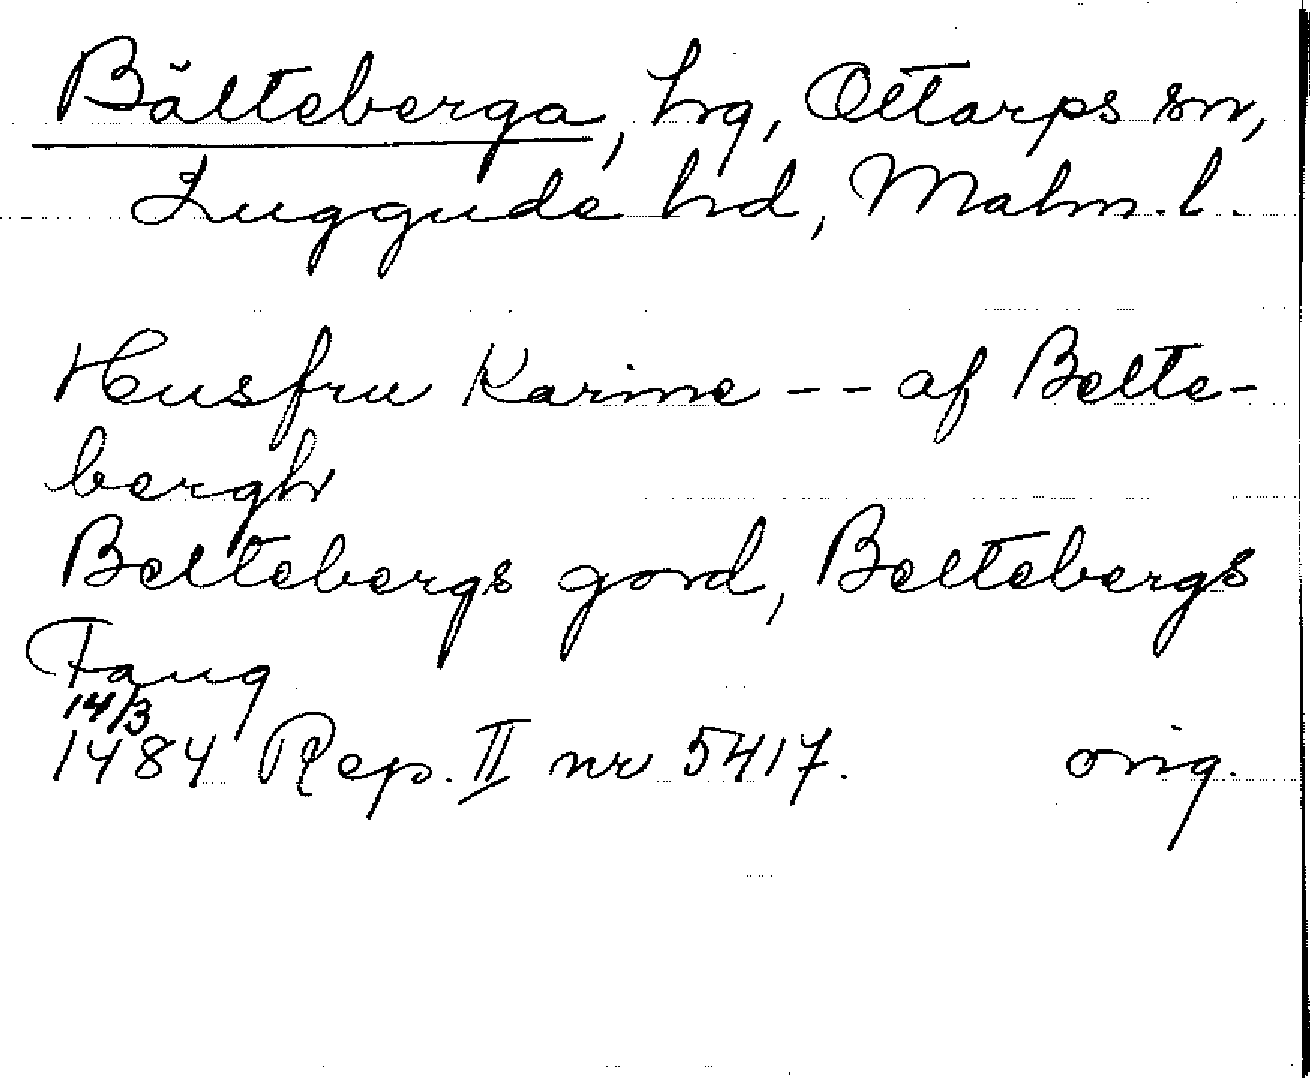 Bälteberga, hrg, Ottarps sn,
Luggude hd, Malm. l.
Husfru Karine -- af Belte-
bergh
Beltebergs gord, Beltebergs
Fang
14/3
1484 Rep. II nr 5417. orig.